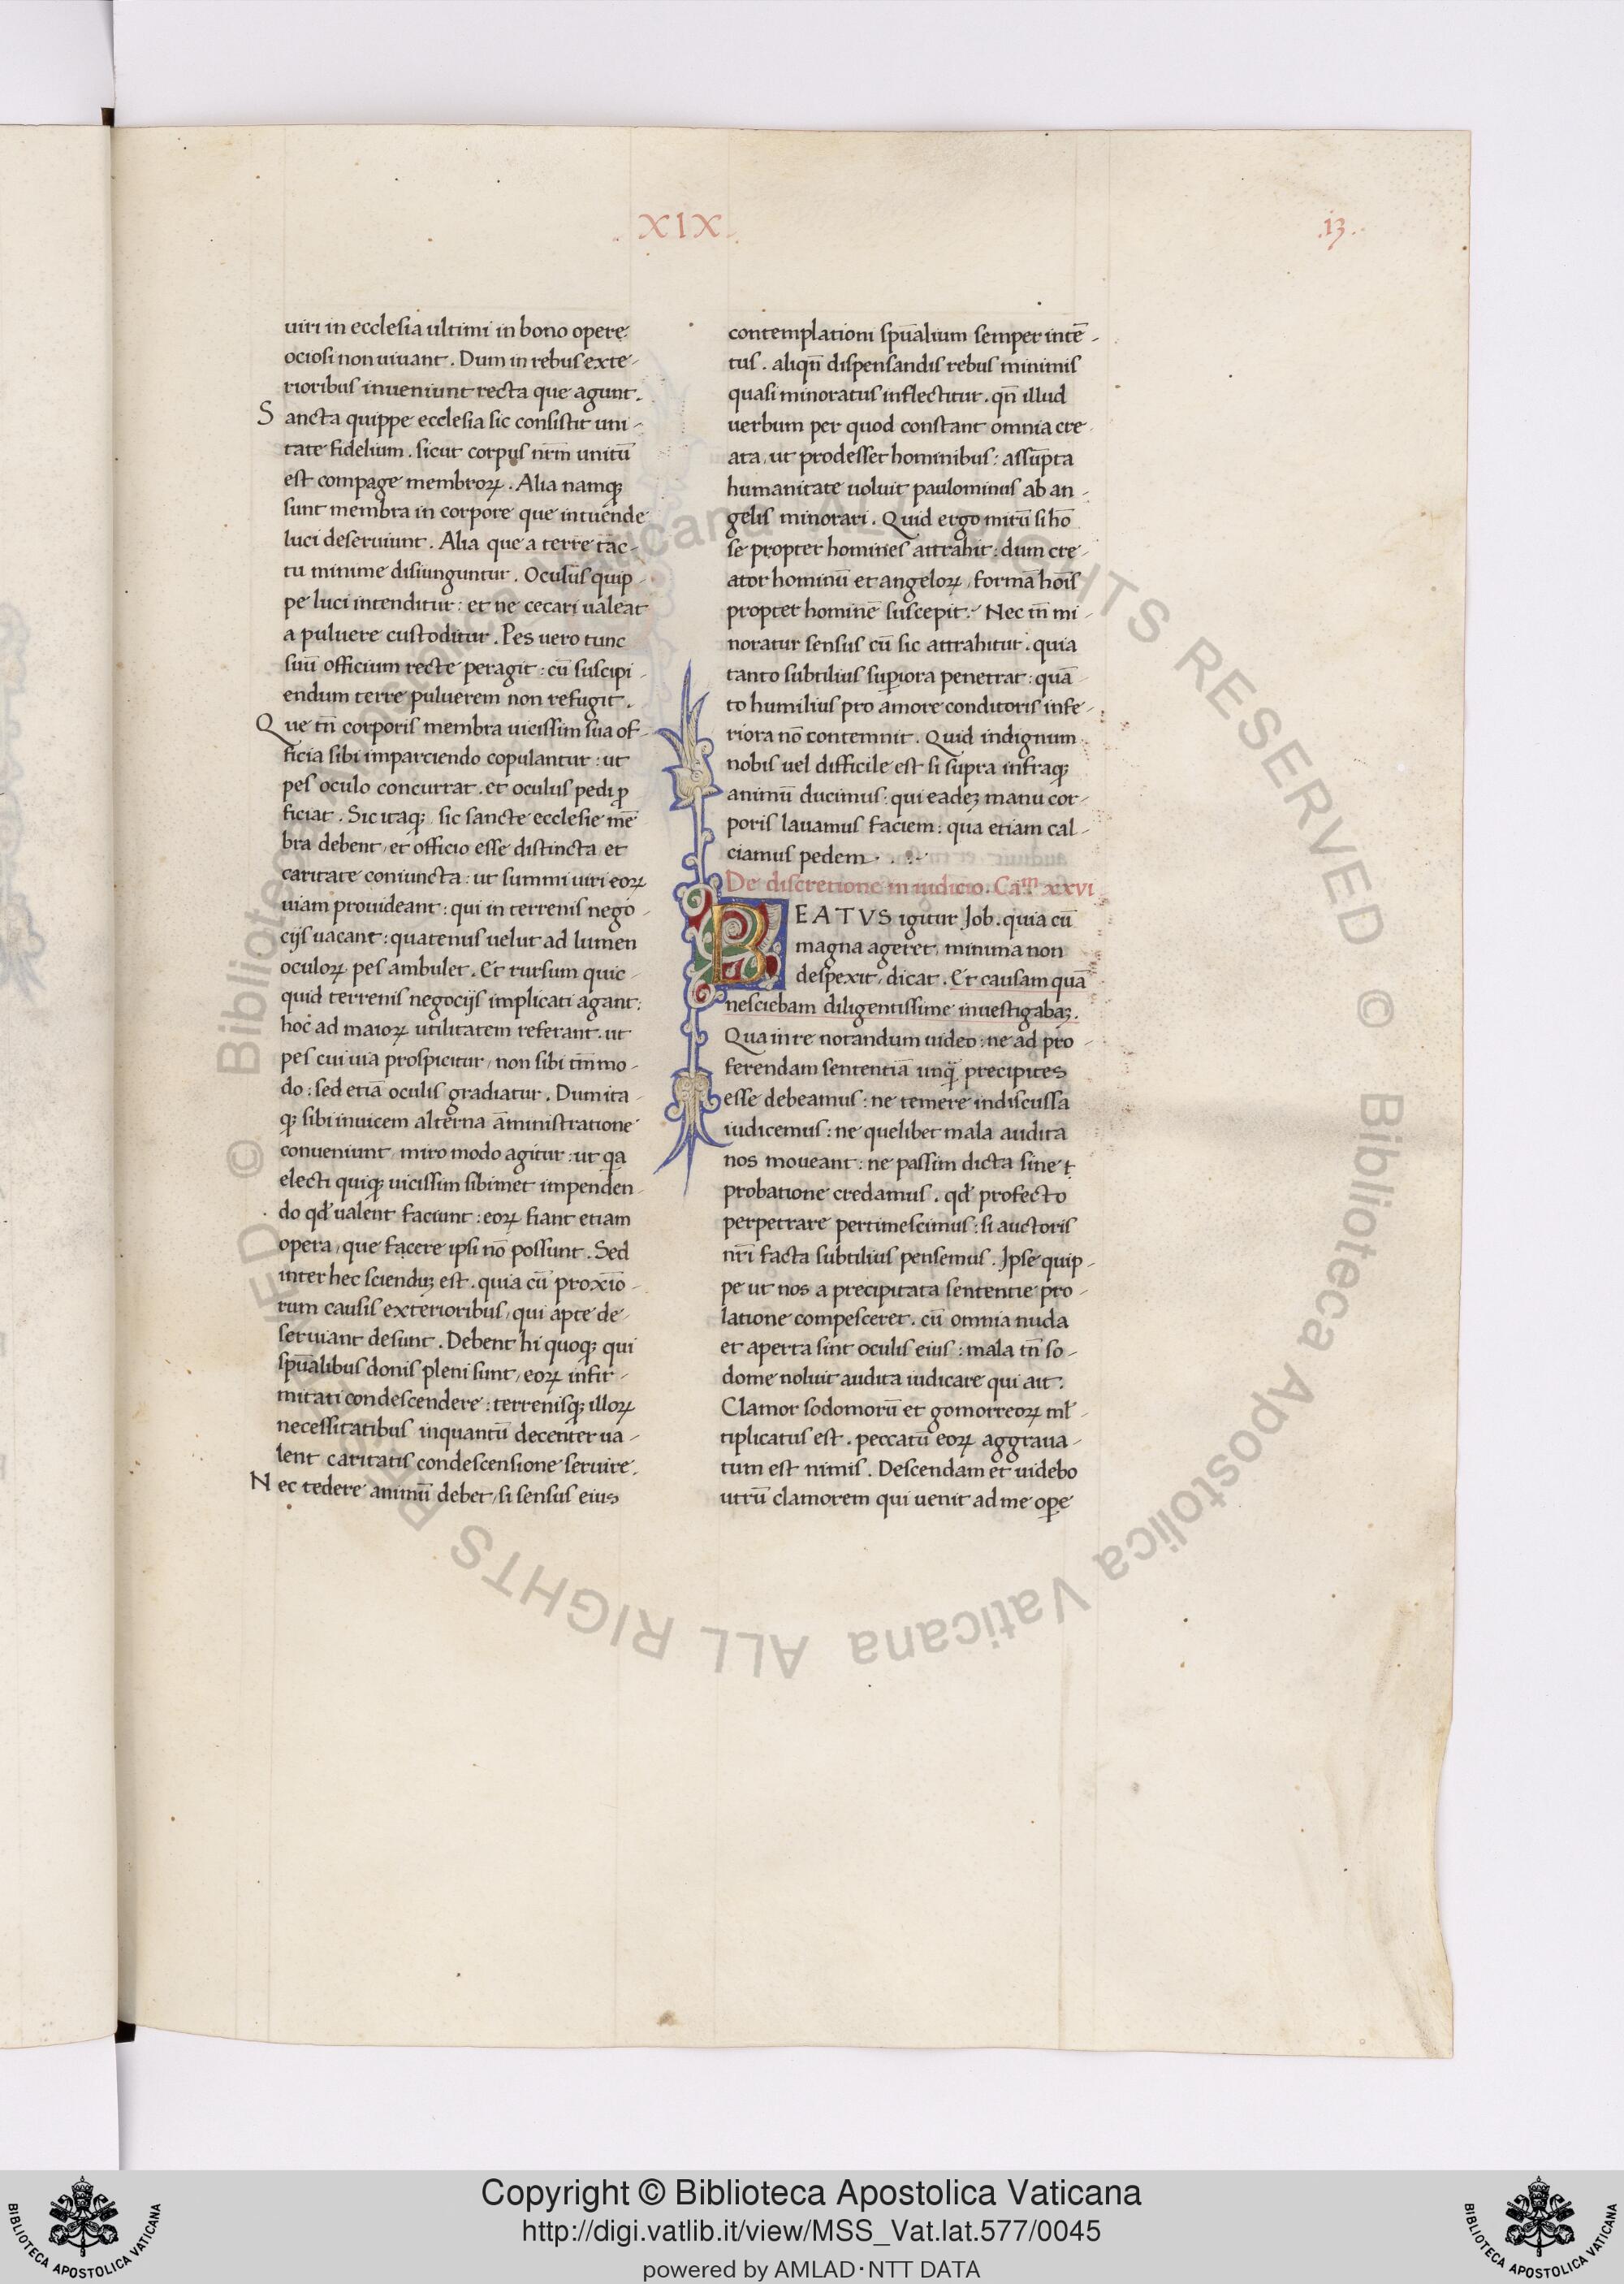 .XIX.
.13.
uiri in ecclesia ultimi in bono opere
ociosi non uiuant. Dum in rebus exte-
rioribus inueniunt recta que agunt.
Sancta quippe ecclesia sic consistit uni-
tate fidelium. sicut corpus nr̄m unitū
est compage membroꝝ. Alia namqꝫ
sunt membra in corpore que intuende
luci deseruiunt. Alia que a terre tac-
tu minime disiunguntur. Oculus quip-
pe luci intenditur: et ne cecari ualeat
a puluere custoditur. Pes uero tunc
suū officium recte peragit: cū suscipi-
endum terre puluerem non refugit.
Que tn̄ corporis membra uicissim sua of-
ficia sibi imparciendo copulantur: ut
pes oculo concurrat. et oculus pedi ꝓ
ficiat. Sic itaqꝫ sic sancte ecclesie mē
bra debent et officio esse distincta et
caritate coniuncta: ut summi uiri eoꝝ
uiam prouideant: qui in terrenis nego-
cijs uacant: quatenus uelut ad lumen
oculoꝝ pes ambulet. Et rursum quic-
quid terrenis negocijs implicati agant:
hoc ad maioꝝ utilitatem referant. ut
pes cui uia prospicitur, non sibi tn̄mo-
do: sed etiā oculis gradiatur. Dum ita-
qꝫ sibi inuicem alterna āministratione
conueniunt, miro modo agitur: ut qa
electi quiqꝫ uicissim sibimet impenden-
do qd̄ ualent faciunt: eoꝝ fiant etiam
opera, que facere ipsi nō possunt. Sed
inter hec sciendꝫ est. quia cū proxīo-
rum causis exterioribus, qui apte de-
seruiant desunt. Debent hi quoqꝫ qui
sp̄ualibus donis pleni sunt, eoꝝ infir-
mitati condescendere: terrenisqꝫ illoꝝ
necessitatibus inquantū decenter ua-
lent caritatis condescensione seruire.
Nec tedere animū debet, si sensus eius
contemplationi sp̄ualium semper intē-
tus. aliqn̄ dispensandis rebus minimis
quasi minoratus inflectitur. qn̄ illud
uerbum per quod constant omnia cre
ata, ut prodesset hominibus: assūpta
humanitate uoluit paulominus ab an-
gelis minorari. Quid ergo mirū si hō
se propter homines attrahit: dum cre-
ator hominū et angeloꝝ, formā hoīs
propter hominē suscepit. Nec tn̄ mi-
noratur sensus cū sic attrahitur. quia
tanto subtilius suꝑiora penetrat: quā-
to humilius pro amore conditoris infe-
riora nō contemnit. Quid indignum
nobis uel difficile est si supra infraqꝫ
animū ducimus: qui eadeꝫ manu cor-
poris lauamus faciem: qua etiam cal-
ciamus pedem.
De discretione in iudicio. Caᵐ xxvi
BEATVS igitur Job. quia cū
magna ageret, minima non
despexit, dicat. Et causam quā
nesciebam diligentissime inuestigabaꝫ.
Qua in re notandum uideo: ne ad pro-
ferendam sententiā unqꝫ precipites
esse debeamus: ne temere indiscussa
iudicemus: ne quelibet mala audita
nos moueant: ne passim dicta sine
probatione credamus. qd̄ profecto
perpetrare pertimescimus: si auctoris
nr̄i facta subtilius pensemus. Ipse quip-
pe ut nos a precipitata sententie pro-
latione compesceret. cū omnia nuda
et aperta sint oculis eius: mala tn̄ so-
dome noluit audita iudicare qui ait.
Clamor sodomorū et gomorreoꝝ ml̄-
tiplicatus est. peccatū eoꝝ aggraua-
tum est nimis. Descendam et uidebo
utrū clamorem qui uenit ad me oꝑe
© Biblioteca Apostolica Vaticana ALL RIGHTS RESERVED
© Biblioteca Apostolica Vaticana ALL RIGHTS RESERVED
BIBLIOTECA APOSTOLICA VATICANA
Copyright © Biblioteca Apostolica Vaticana
http://digi.vatlib.it/view/MSS_Vat.lat.577/0045
powered by AMLAD·NTT DATA
BIBLIOTECA APOSTOLICA VATICANA